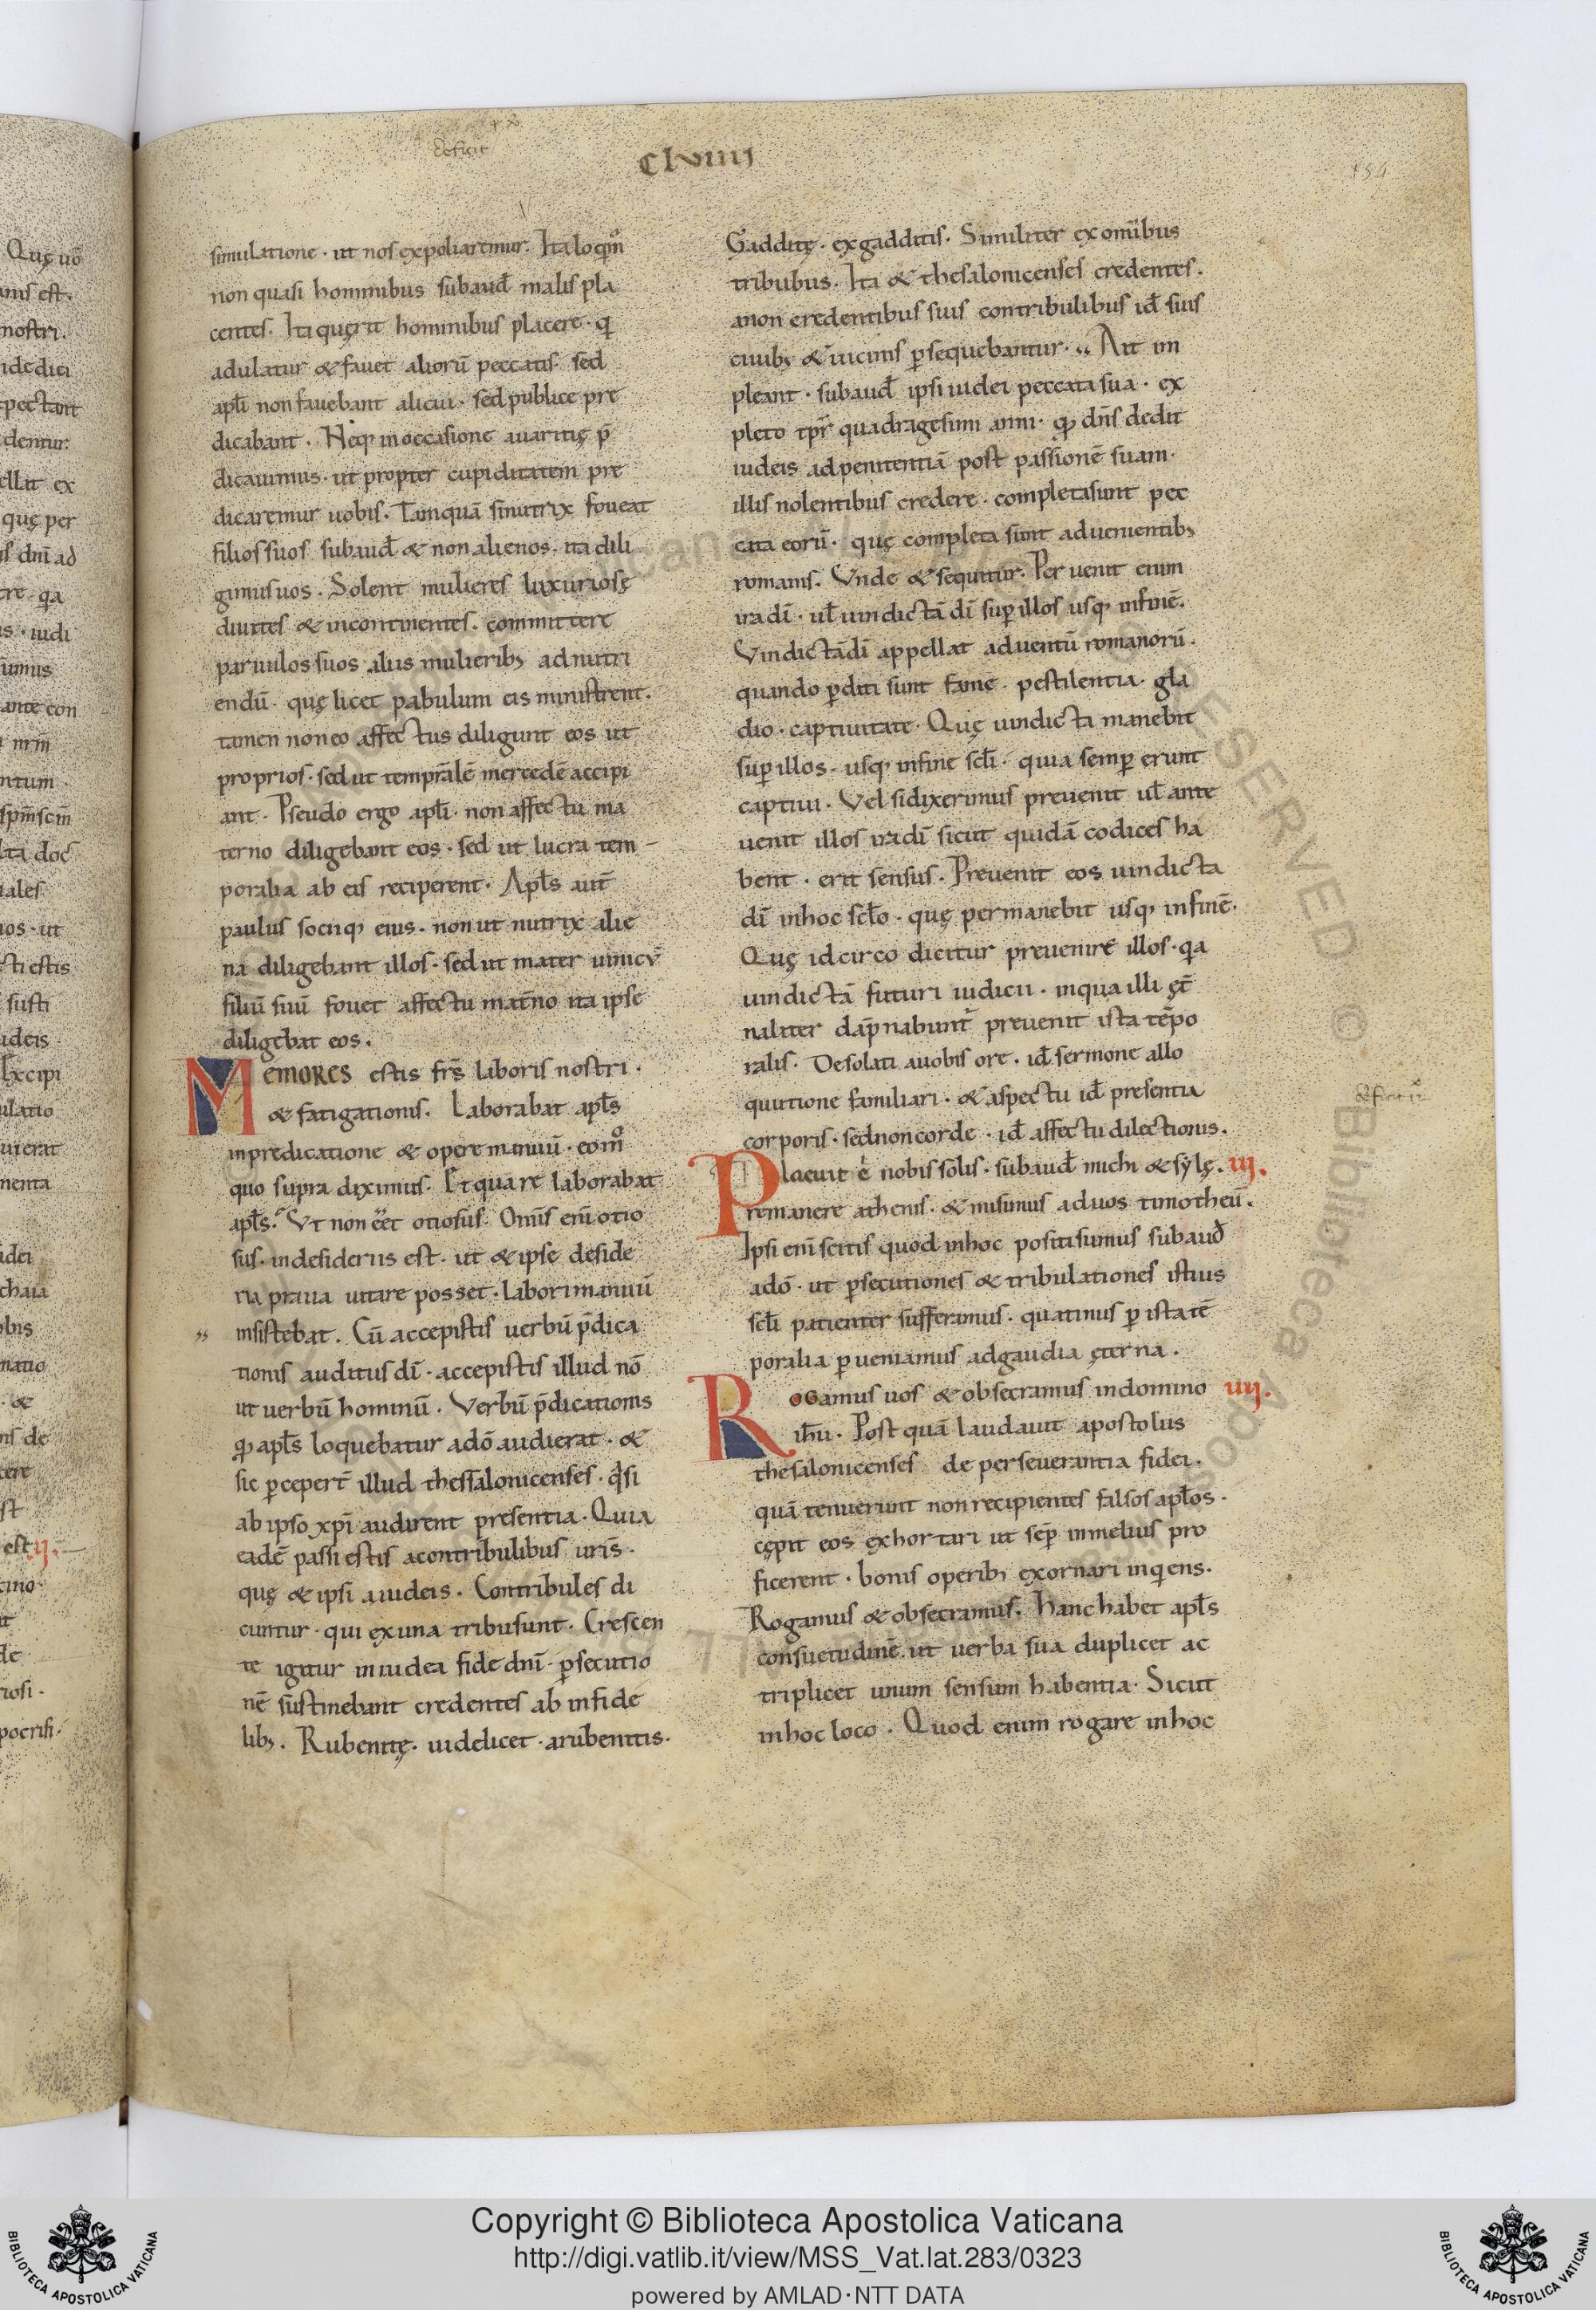 deficit
CLVIIII
154
simulatione · ut nos expoliaremur. Ita loqm̃
non quasi hominibus subaud̄ malis pla
centes. Ita querit hominibus placere · q̇
adulatur & fauet aliorū peccatis · sed
apłi non fauebant alicui · sed publice pre
dicabant. Neq; in occasione auaritię p̄
dicauimus · ut propter cupiditatem pre
dicaremur uobis. Tamquā si nutrix foueat
filios suos subaud̄ & non alienos · ita dili
gimus uos. Solent mulieres luxuriosę
diuites & incontinentes · committere
paruulos suos aliis mulierib; ad nutri
endū · quę licet pabulum eis ministrent ·
tamen non eo affectus diligunt eos ut
proprios · sed ut temp̄ralē mercedē accipi
ant. Pseudo ergo apłi · non affectu ma
terno diligebant eos · sed ut lucra tem-
poralia ab eis reciperent. Apłs aut̄
paulus sociiq; eius · non ut nutrix alie
na diligebant illos · sed ut mater unicū
filiū suū fouet affectu mat̄no ita ipse
diligebat eos.
MEMORES estis fr̄s laboris nostri ·
& fatigationis. Laborabat apłs
in predicatione & opere manuū · eom̊
quo supra diximus. Et quare laborabat
apłs? Vt non eēt otiosus. Omīs enī otio
sus · in desideriis est · ut & ipse deside
ria praua uitare posset · labori manuū
insistebat. Cū accepistis uerbū p̄dica
tionis auditus dī · accepistis illud nō
ut uerbū hominū. Verbū p̄dicationis
qđ apłs loquebatur a dō audierat · &
sic ꝑceper̄t illud thessalonicenses · q̇si
ab ipso xp̄i audirent presentia. Quia
eadē passi estis a contribulibus ur̄is ·
quę & ipsi a iudeis. Contribules di
cuntur · qui ex una tribu sunt. Crescen
te igitur in iudea fide dnī · ꝑsecutio
nē sustinebant credentes ab infide
lib;. Rubenitę · uidelicet · a rubenitis.
Gadditę · ex gadditis. Similiter ex omībus
tribubus. Ita & thesalonicenses credentes ·
a non credentibus suis contribulibus id̄ suis
ciuib; & uicinis ꝑsequebantur. Ait im
pleant · subaud̄ ipsi iudei peccata sua · ex
pleto tp̄r quadragesimi anni · qđ dn̄s dedit
iudeis ad penitentiā post passionē suam ·
illis nolentibus credere · completa sunt pec
cata eorū · quę completa sunt aduenientib;
romanis. Vnde & sequitur. Peruenit enim
ira dī · uł uindictā dī suꝑ illos usq; in finē.
Vindictā dī appellat aduentū romanorū ·
quando ꝑditi sunt fame · pestilentia · gla
dio · captiuitate · Quę uindicta manebit
suꝑ illos · usq; in fine scłi · quia semꝑ erunt
captiui. Vel si dixerimus preuenit uł ante
uenit illos ira dī sicut quidā codices ha
bent · erit sensus. Preuenit eos uindicta
dī in hoc scło · quę permanebit usq; in finē.
Quę idcirco dicitur preuenire illos · q̇a
uindictā futuri iudicii · in qua illi ęt̄
naliter dāpnabunt̄ preuenit ista tēpo
ralis. Desolati a uobis ore · id̄ sermone allo
quutione familiari · & aspectu id̄ presentia
corporis · sed non corde · id̄ affectu dilectionis.
Placuit ē nobis solis · subaud̄ michi & sylę. iij.
remanere athenis · & misimus ad uos timotheū.
Ipsi enī scitis quod in hoc positi sumus subaud̄
a dō · ut ꝑsecutiones & tribulationes istius
scłi patienter sufferimus · quatinus ꝑ ista tē
poralia ꝑueniamus ad gaudia ęterna.
ROGamus uos & obsecramus in domino iiij.
ih̄u. Post quā laudauit apostolus
thesalonicenses de perseuerantia fidei ·
quā tenuerunt non recipientes falsos apłos ·
cępit eos exhortari ut sēp in melius pro
ficerent · bonis operib; exornari inq̇ens.
Rogamus & obsecramus. Hanc habet apłs
consuetudinē ut uerba sua duplicet ac
triplicet unum sensum habentia. Sicut
in hoc loco. Quod enim rogare in hoc
Copyright © Biblioteca Apostolica Vaticana
http://digi.vatlib.it/view/MSS_Vat.lat.283/0323
powered by AMLAD·NTT DATA
BIBLIOTECA APOSTOLICA VATICANA
BIBLIOTECA APOSTOLICA VATICANA